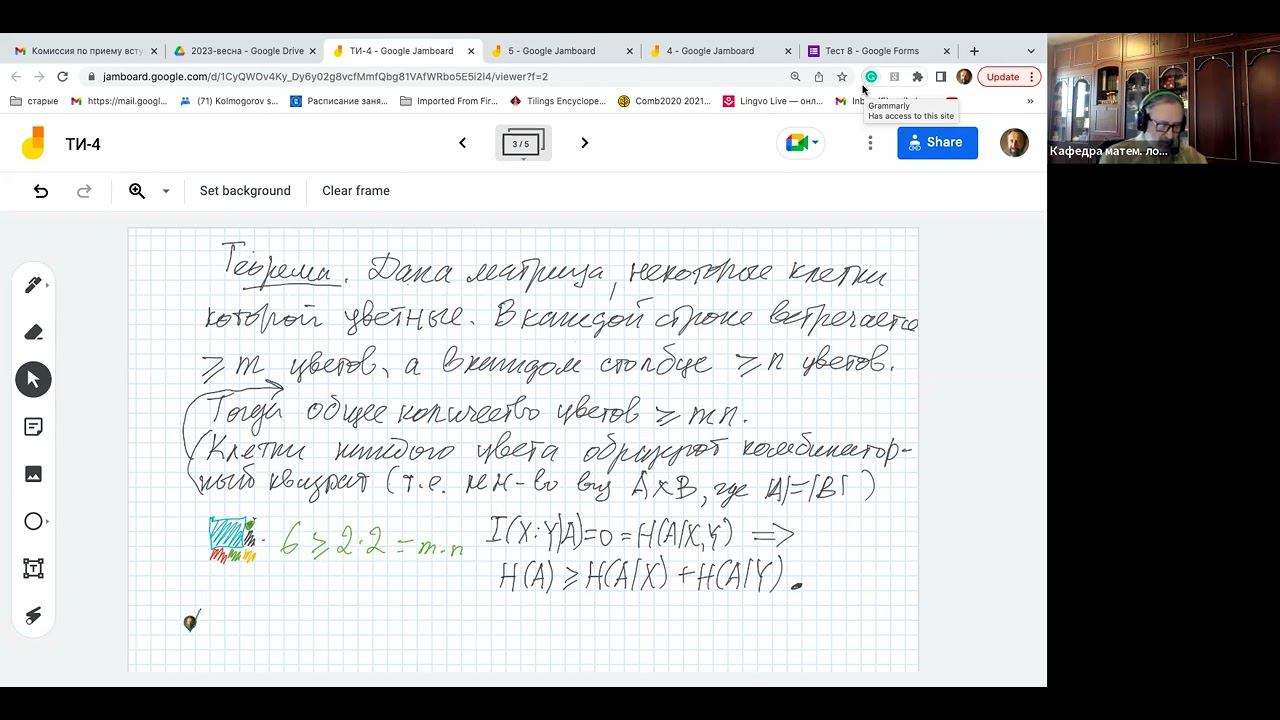 Комиссия по приему всту
2023-весна - Google Drive
ТИ-4 - Google Jamboard
5 - Google Jamboard
4 - Google Jamboard
Тест 8 - Google Forms
jamboard.google.com/d/1CyQWOv4Ky_Dy6y02g8vcfMmfQbg81VAfWRbo5E5i2I4/viewer?f=2
Update
старые
https://mail.googl...
(71) Kolmogorov s...
Расписание заня...
Imported From Fir...
Tilings Encyclope...
Comb2020 2021...
Lingvo Live — онл...
»
Grammarly
Has access to this site
ТИ-4
3 / 5
Share
Set background
Clear frame
Кафедра матем. ло...
Теорема. Дана матрица, некоторые клетки
которой цветные. В каждой строке встречается
≥ m цветов, а в каждом столбце ≥ n цветов.
Тогда общее количество цветов ≥ mn.
(Клетки каждого цвета образуют комбинатор-
ный квадрат (т.е. мн-во вида A×B, где |A|=|B|)
6 ≥ 2·2 = m·n
I(X:Y|A)=0=H(A|X,Y) ⟹
H(A) ≥ H(A|X) + H(A|Y).